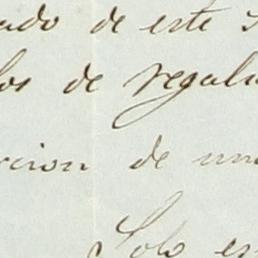 ado de este
los de regala
cion de un
Solo es